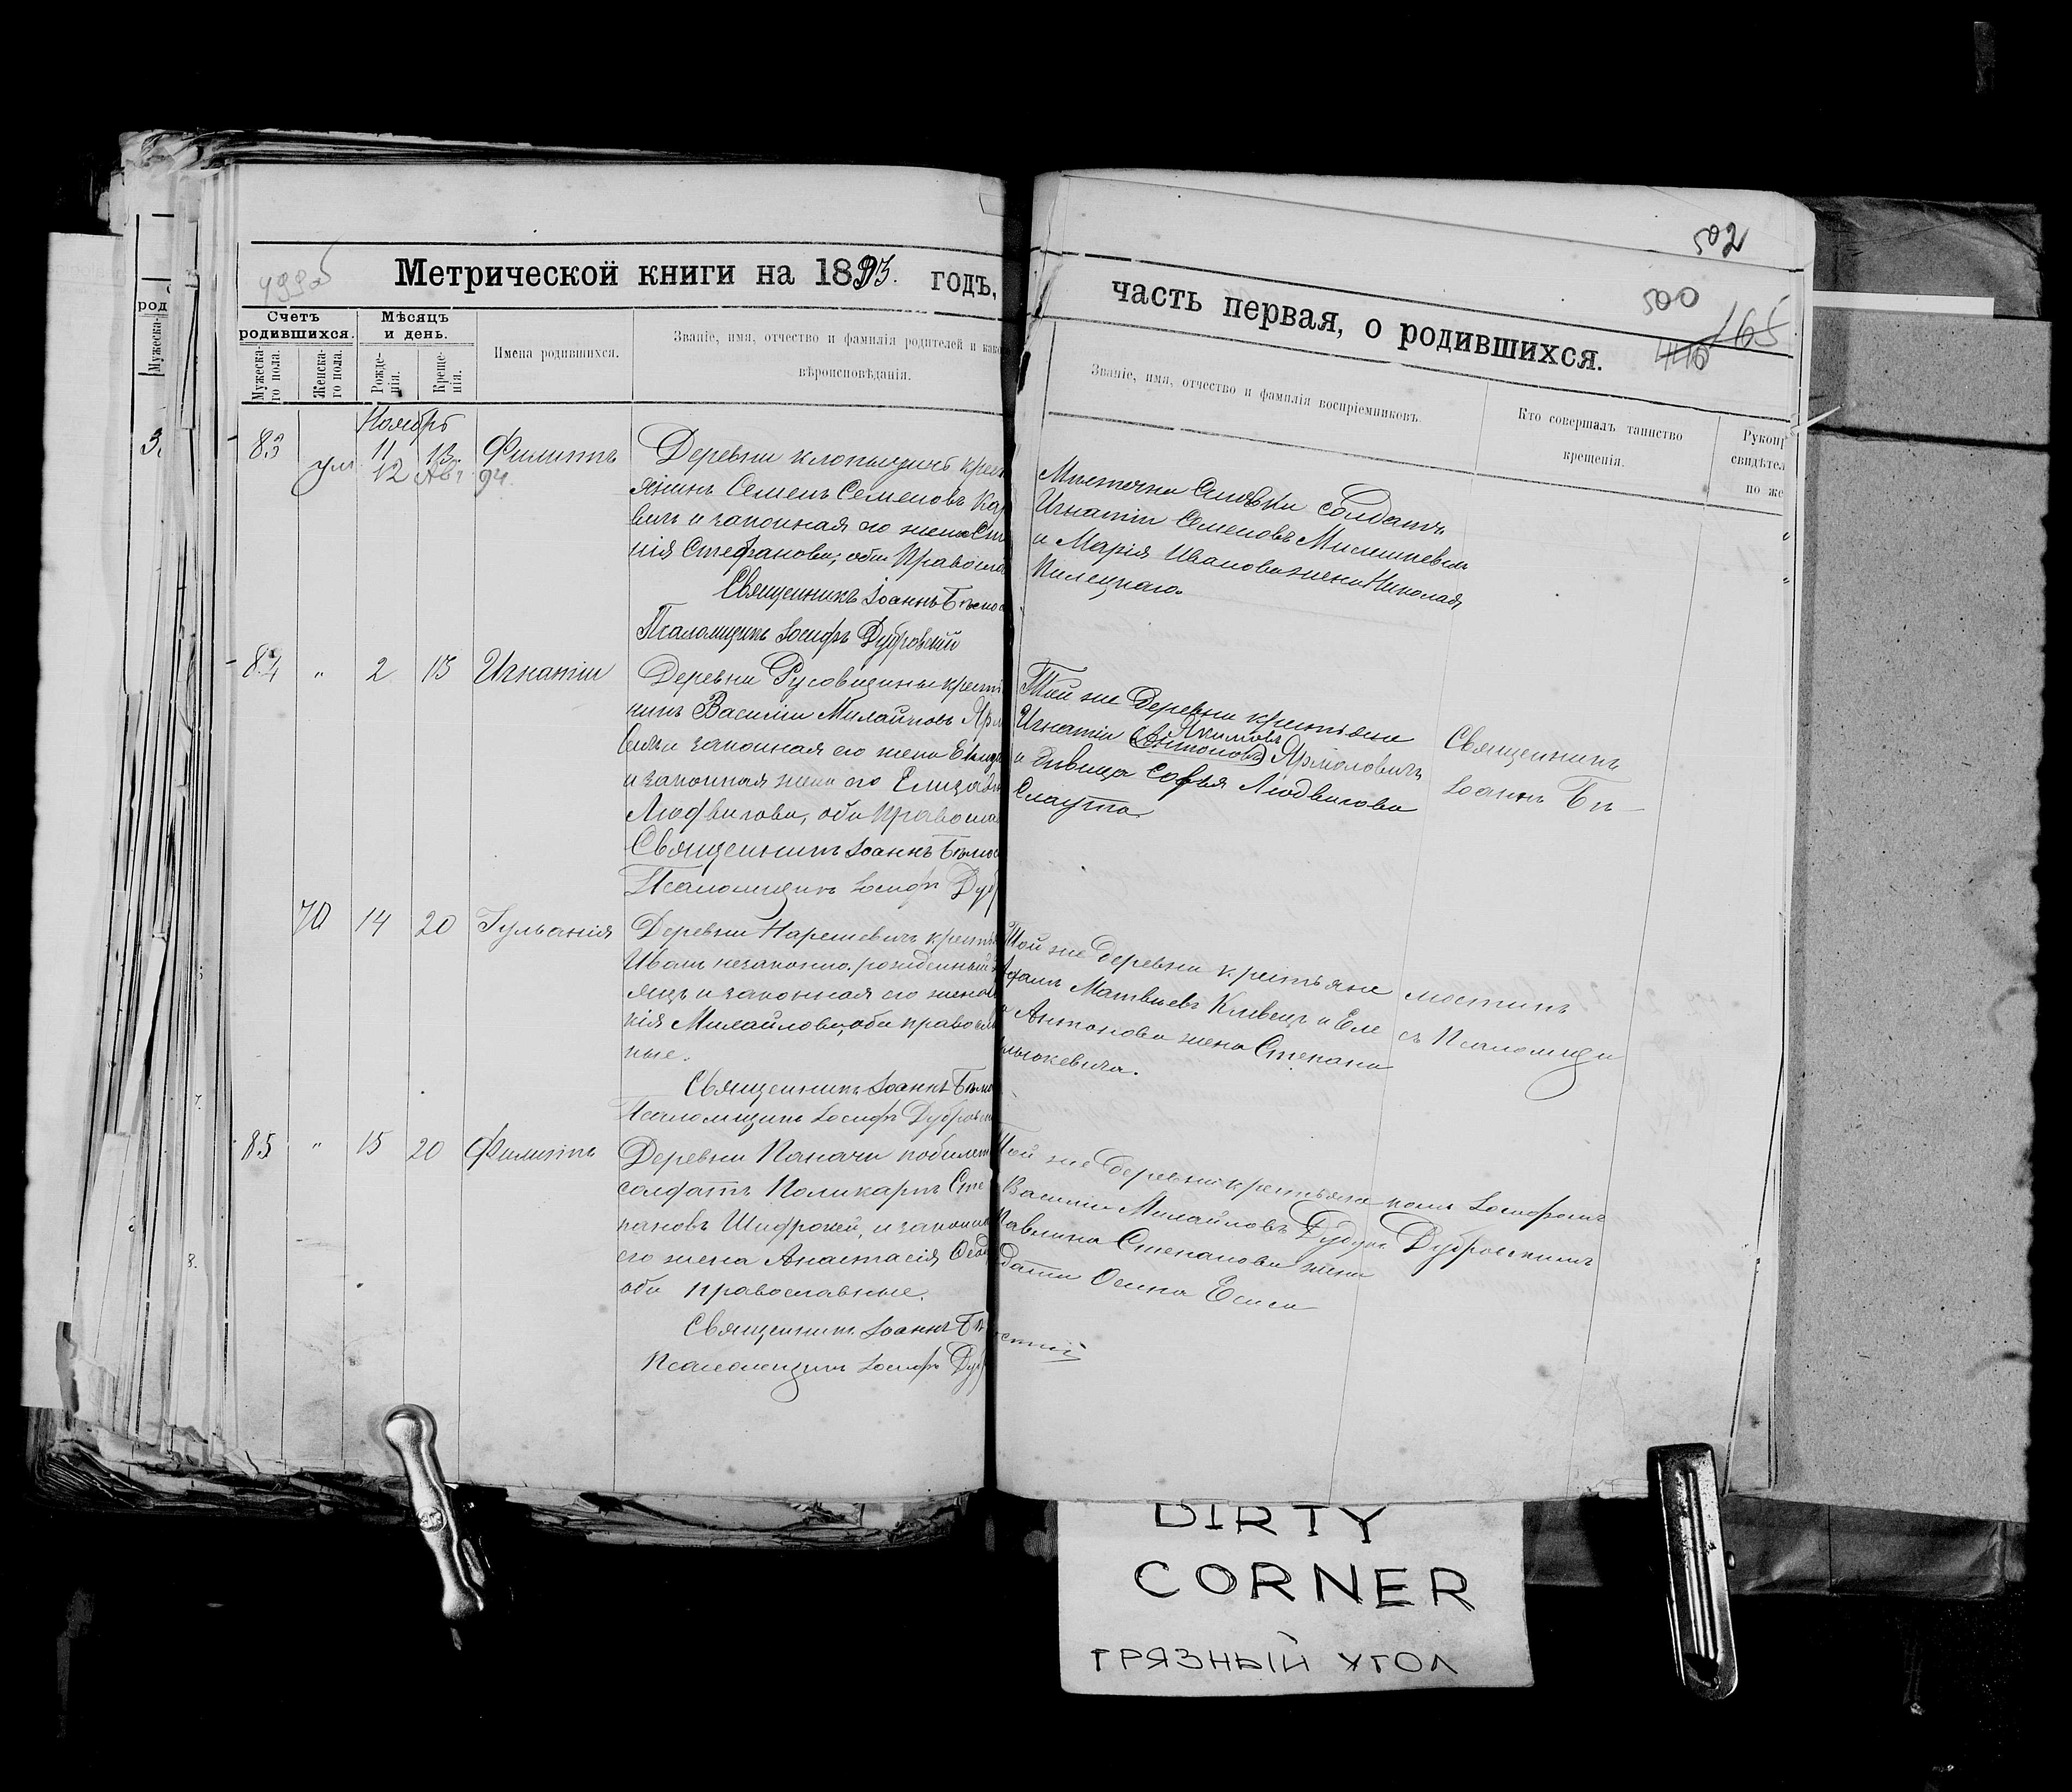 502
499об
Метрической книги на 1893. годъ,
часть первая, о родившихся.
500
165
род
Мужеска-
Счетъ
родившихся.
Мѣсяцъ
и день.
Мужеска-
го пола.
Женска-
го пола.
Рожде-
нія.
Креще-
нія.
Имена родившихся.
Званіе, имя, отчество и фамилія родителей и како
вѣроисповѣданія.
Званіе, имя, отчество и фамилія воспріемниковъ.
Кто совершалъ таинство
крещенія.
Рукопр
свидѣтел
по же
Ноябрь
83 11 13. Филиппъ
ум 12 Авг 94.
Деревни Клопыщичъ крест
янинъ Семенъ Семеновъ Ка
вичъ и законная его жена
нія Стефанова, оба Правосла
Священникъ Іоаннъ
Псаломщикъ Іосифъ Дубровскій
Мѣстечка солдатъ
Игнатій Семеновъ Милишкевичъ
и Марія Иванова жена Николая
Пилецкаго.
84 " 2 13 Игнатій
Деревни Русовщины крестя
нинъ Василій Михайловъ Ярм
вичъ и законная его жена
и законная жена его Елизав
Людвигова, оба Правосла
Священникъ Іоаннъ
Псаломщикъ Іосифъ Дуб
Той же деревни крестьяне
Якимовъ
Игнатій (Антоновъ) Ярмоловичъ
и дѣвица Софья Людвигова
Слаута.
Священникъ
Іоаннъ Бѣ-
70 14 20 Іульянія
Деревни Нарешевичъ крестья
Иванъ незаконно-рожденный
яцъ и законная его жена
кія Михайлова, оба правосла
ные.
Священникъ Іоаннъ
Псаломщикъ Іосифъ Дубровск
Той же деревни крестьяне
Адамъ Матвѣевъ Кивецъ и Еле
Антонова жена Степана
мостикъ
съ Псаломщи
85 " 15 20 Филиппъ
Деревни Паначи побилет
солдатъ Поликарпъ Сте
пановъ и законн
его жена Анастасія
оба православные.
Священникъ Іоаннъ Бѣ
Псаломщикъ Іосифъ Дуб
Той же деревни крестьяне
Василій Михайловъ
Павлина Степанова жена
Осипа
комъ Іосифомъ
Дубровскимъ
DIRTY
CORNER
ГРЯЗНЫЙ УГОЛ